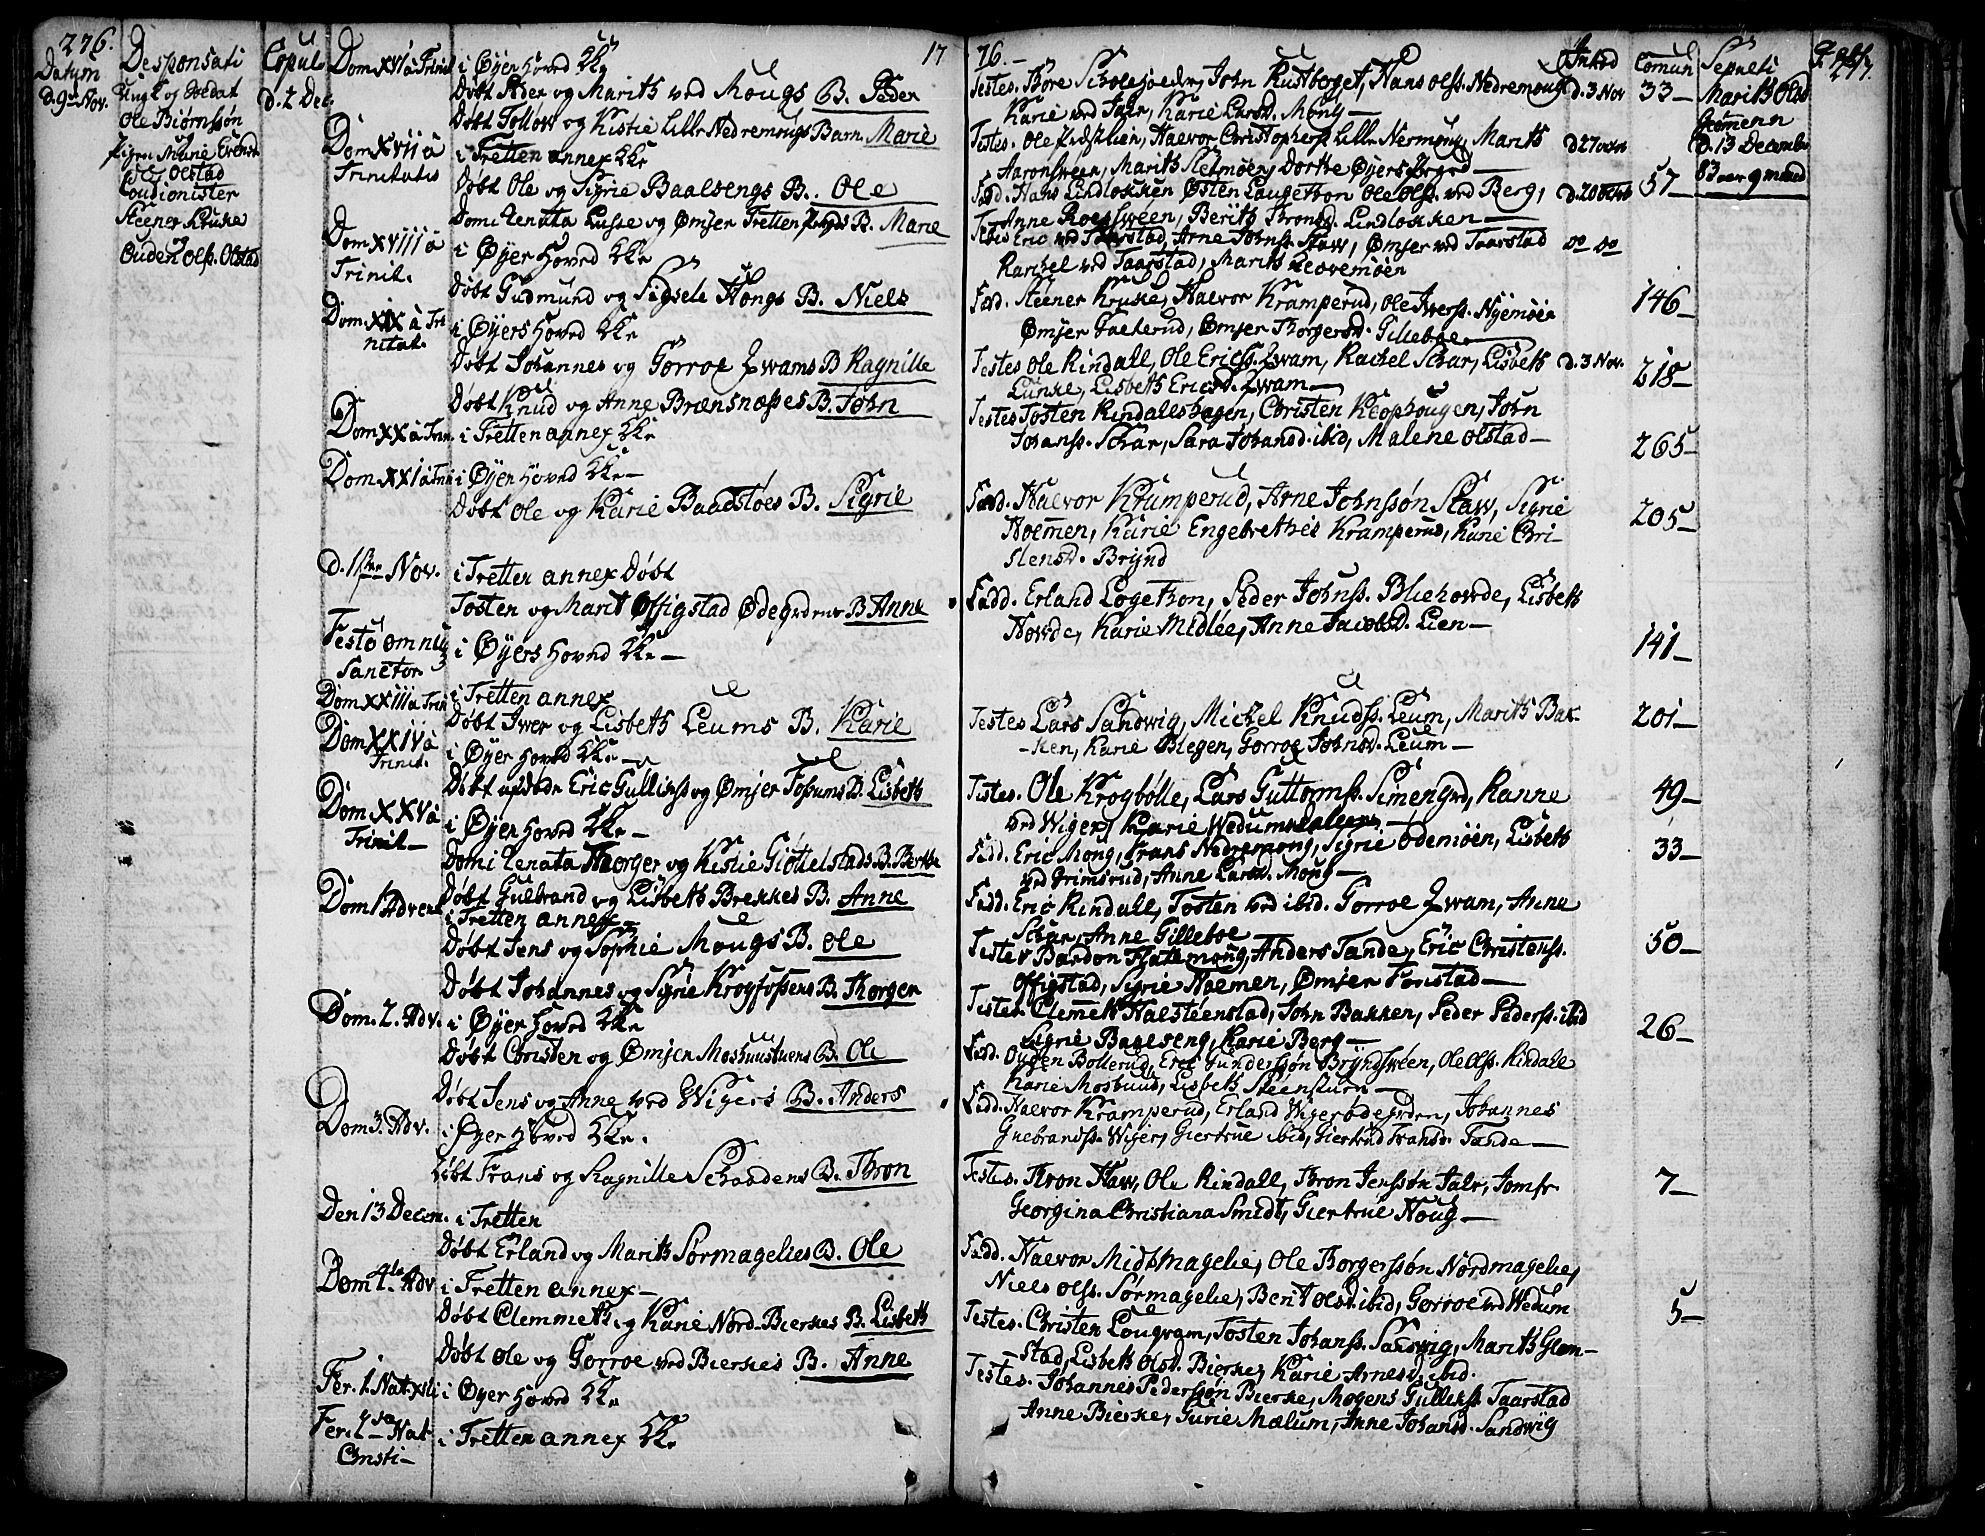 276.
Datum
D. 9de Nov.
Desponsati
Ungk og Soldat
Ole Biørnssøn
Pigen Marie Evensd.
Olstad
Coutionister
Steener Kruke
Ouden Olss. Olstad
Copul
D. 2 Dec
Dom XVI à Trinit
i Øyer Hoved Kke
Døbt Peder og Marith ved Mougs B. Peder
Døbt Tollow og Kistie Lille Nedremougs Barn. Marie
Dom XVII à
Trinitatis
i Tretten annex Kke
Døbt Ole og Sigrie Baalsengs B. Ole
Domi Renata Lusse og Ømjer Tretten B. Marie
Dom XVIII à
Trinit.
i Øyer Hoved Kke
Døbt Gudmund og Sidsele Hongs B. Niels
Dom XIX à Tri
nitat.
i Øyers Hoved Kke
Døbt Johannes og Gorroe Qwams B Ragnille
Døbt Knud og Anne Brænsnæses B. John
Dom XX à Trin
i Tretten annex Kke
Dom XXI à Trin
i Øyer Hoved Kke
Døbt Ole og Karie Baadstøes B. Sigrie
D. 1ste Nov.
i Tretten annex Døbt
Tosten og Marit Offigstad Ødegrdens B Anne
Festo omniū
Sanctor.
i Øyers Hoved Kke
Dom XXIII à Trin
i Tretten annex
Døbt Iwer og Lisbeth Leums B. Karie
Dom XXIV à
Trinit.
i Øyer Hoved Kke
Døbt Eric Gullichss og Ømjer Fossums B. Lisbeth
Dom XXV à
Trinit
i Øyer Hoved Kke
Domi Renata Thorger og Kistie Giøttelstads B. Berthe
Døbt Gulbrand og Lisbeth Brekkes B. Anne
Dom 1 Advent
i Tretten annex
Døbt Jens og Sophie Mougs B. Ole
Døbt Johannes og Sigrie Krogfossens B. Thorger
Dom. 2. Adv.
i Øyer Hoved Kke
Døbt Christen og Ømjer Mosbuustuens B. Ole
Døbt Jens og Anne ved Wigers B. Anders
Dom 3. Adv.
i Øyer Hoved Kke.
Døbt Frans og Ragnille Schaadens B. Thron
Den 13 Decem.
i Tretten
Døbt Erland og Marith Sørmagelies B. Ole
Dom 4te Adv
i Tretten annex
Døbt Clemmeth og Karie Nord-Bierkes B. Lisbeth
Døbt Ole og Gorroe ved Bierkes B. Anne
Fer. 1. Nat. xsti
i Øyer Hoved Kke
Fer. 2da Nat
Christi
i Tretten annex Kke
17
76.
Testes. Tore Scholesoeder, John Rustberget, Hans Olss. Nedremoug
Karie ved Jahr, Karie Larsd. Moug
Testes. Ole Qvistlien, Haevor Christophers Lille Nermoug, Marith
Aaronsween, Marith Selmøen, Dorthe Øyers
Fad. Hans Lindlokken Østen Laugethon Ole Olss. ved Berg,
Anne Roelssween, Berith Thronsd. Lindlokken
Testes Eric ved Taarstad, Arne Johnss. Staw, Ømjer ved Taarstad
Rachel ved Taarstad, Marith Kleovemøen
Fad. Steener Kruke, Haevor Kramperud, Ole Iverss. Nyemøen
Ømjer Gaeterud, Ømjer Thorgersd. Gilleboe
Testes Ole Rindall, Ole Ericss. Qwam, Rachel Schar, Lisbeth
Lunke, Lisbeth Ericsd. Qwam
Testes Tosten Rindaleshagen, Christen Klophougen, John
Johanss. Schar, Sara Johansd. ibid, Malene Olstad
Fadd. Haevor Kramperud, Arne Johnssøn Staw, Sigrie
Hoemen, Karie Engebrethes Kramperud, Karie Chri-
stensd. Brynd
Fadd. Erland Logethon, Peder Johnss. Bliehovde, Lisbeth
Hovde, Karie Midlie, Anne Jacobsd. Lien
Testes Lars Sandwig, Michel Knudss. Leum, Marith Bak-
ken, Karie Blegen, Gorroe Johnsd. Leum
Testes. Ole Krogbølle, Lars Guttormss. Simengrd, Ranne
ved Wiger, Karie Wedumsdalen
Fadd. Eric Moug, Frans Nedremoug, Sigrie Odemøen, Lisbeth
ved Grimsrud, Anne Larsd. Moug
Fadd. Eric Rindall, Tosten ved ibid. Gorroe Qwam, Anna
Schar, Anne Gilleboe
Testes Bardon Flatemoug, Anders Tande, Eric Christenss.
Offigstad, Sigrie Hoemen, Ømjer Fonstad
Testes. Clemeth Haelsteenstad, John Bakken, Peder Pederss. ibid
Sigrie Baalseng, Karie Berg
Fad. Oyden Bollerud, Eric Gunderssøn Bryndsween, Ole Olss. Rindale
Karie Mosbuud, Lisbeth Steenstuen
Fadd. Haevor Kramperud, Erland Wigerødegrden, Johannes
Guebrandss. Wiger, Giertrue ibid, Giertrud Fransd. Tande
Testes. Thron Haw, Ole Rindall, Thron Jenssøn Jale, Jomfr
Georgina Christiana Smidt, Giertrue Houg
Fadd. Haevor Midtmagelie, Ole Thorgerssøn Nordmagelie,
Niels Olss. Sørmagelie, Berit Olsd. ibid, Gorroe ved Wedum
Testes. Christen Lougvam, Tosten Johanss. Sandwig, Marith Glem-
stad, Lisbeth Olsd. Bierke, Karie Arnesd. ibid.
Testes. Johannes Pederssøn Bierke, Mogens Gullekss. Taarstad
Anne Bierke, Gurie Mælum, Anne Johansd. Sandwig
Introd
D. 3 Nov
D 27 octob
D. 20 octob
do do
D. 3 Nov.
Comun
33
57
146
218
265
205
141
201
49
33
50
26
7
5
Sepulti
Marith Olsd
Hoemenn
D. 13 December
83 aar 9 maaned
277.